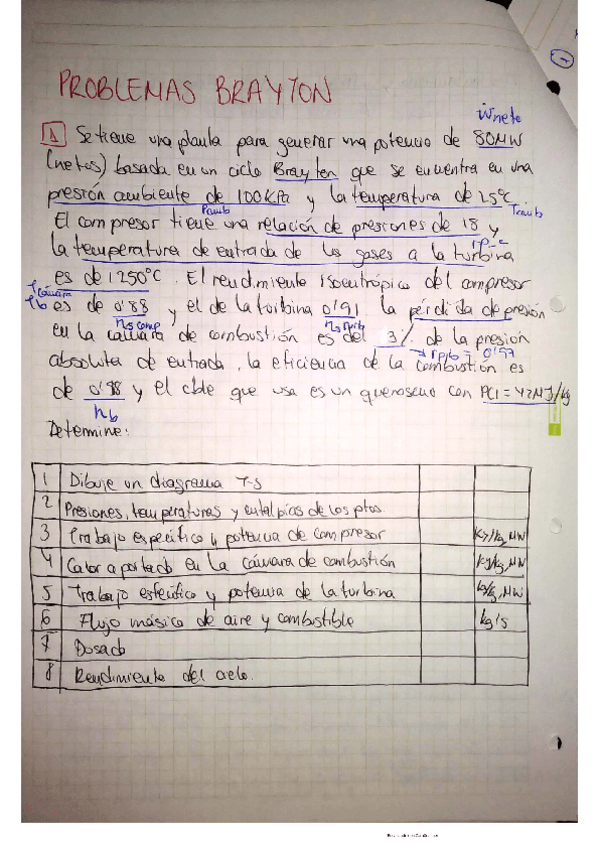 PROBLEMAS BRAYTON
Wneta
1 Se tiene una planta para generar una potencia de 80MW
(netos) basada en un ciclo Brayton que se encuentra en una
presión ambiente de 100KPa y la temperatura de 25ºC.
Pamb Tamb
El compresor tiene una relación de presiones de 18 y
rp_c
la temperatura de entrada de los gases a la turbina
es de 1250ºC. El rendimiento isoentrópico del compresor
Tcámara
es de 0'88 y el de la turbina 0'91. la pérdida de presión
ηs comp
en la cámara de combustión es del 3% de la presión
→ rprb = 0'97
absoluta de entrada, la eficiencia de la combustión es
de 0'98 y el cble que usa es un queroseno con PCI = 42MJ/kg
ηb
Determine:
1 Dibuje un diagrama T-S
2 Presiones, temperaturas y entalpías de los ptos.
3 Trabajo específico y potencia de compresor KJ/kg, MW
4 Calor aportado en la cámara de combustión KJ/kg, MW
5 Trabajo específico y potencia de la turbina KJ/kg, MW
6 Flujo másico de aire y combustible kg/s
7 Dosado
8 Rendimiento del ciclo.